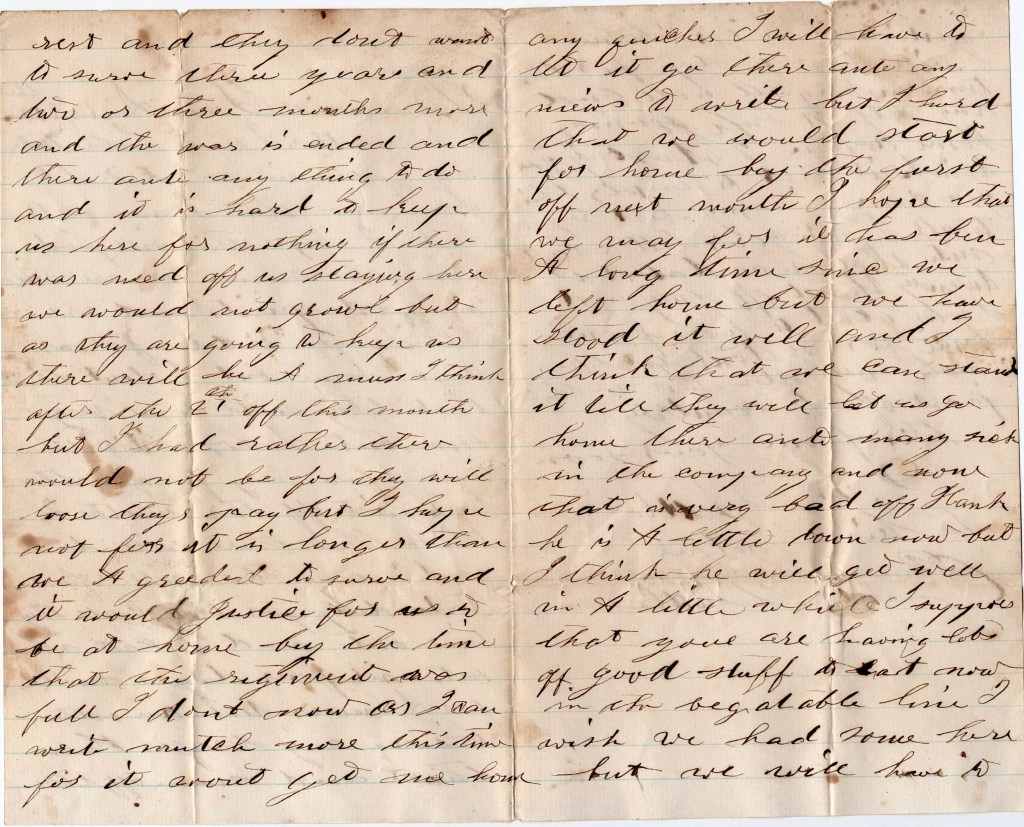 rest and they dont want
to surve three years and
two or three months more
and the war is ended and
there ante any thing to do
and it is hard to keep
us here for nothing if there
was need off us staying here
we would not growl but
as they are going to keep us
there will be A muss I think
after the th off this month
but I had rather ther
would not be for they will
loose they pay but I hope
not for it is longer than
we A greeded to surve and
it would Justice for us to
be at home by the time
that the regiment was
full I dont now as I can
write mutch more this time
for it wont get me home
any quicker I will have to
let it go there ante any
niews to write but I hord
that we would start
for home buy the furst
off next month I hope that
we may for it has ben
A long time since we
left home but we have
stood it well and I
think that we can stand
it till they will let us go
home there ante many sick
in the company and none
that is very bad off Hank
he is A little down now but
I think he will get well
in A little while I suppose
that youe are having lots
off good stuff to eat now
in the begatable line I
wish we had some here
but we will have to